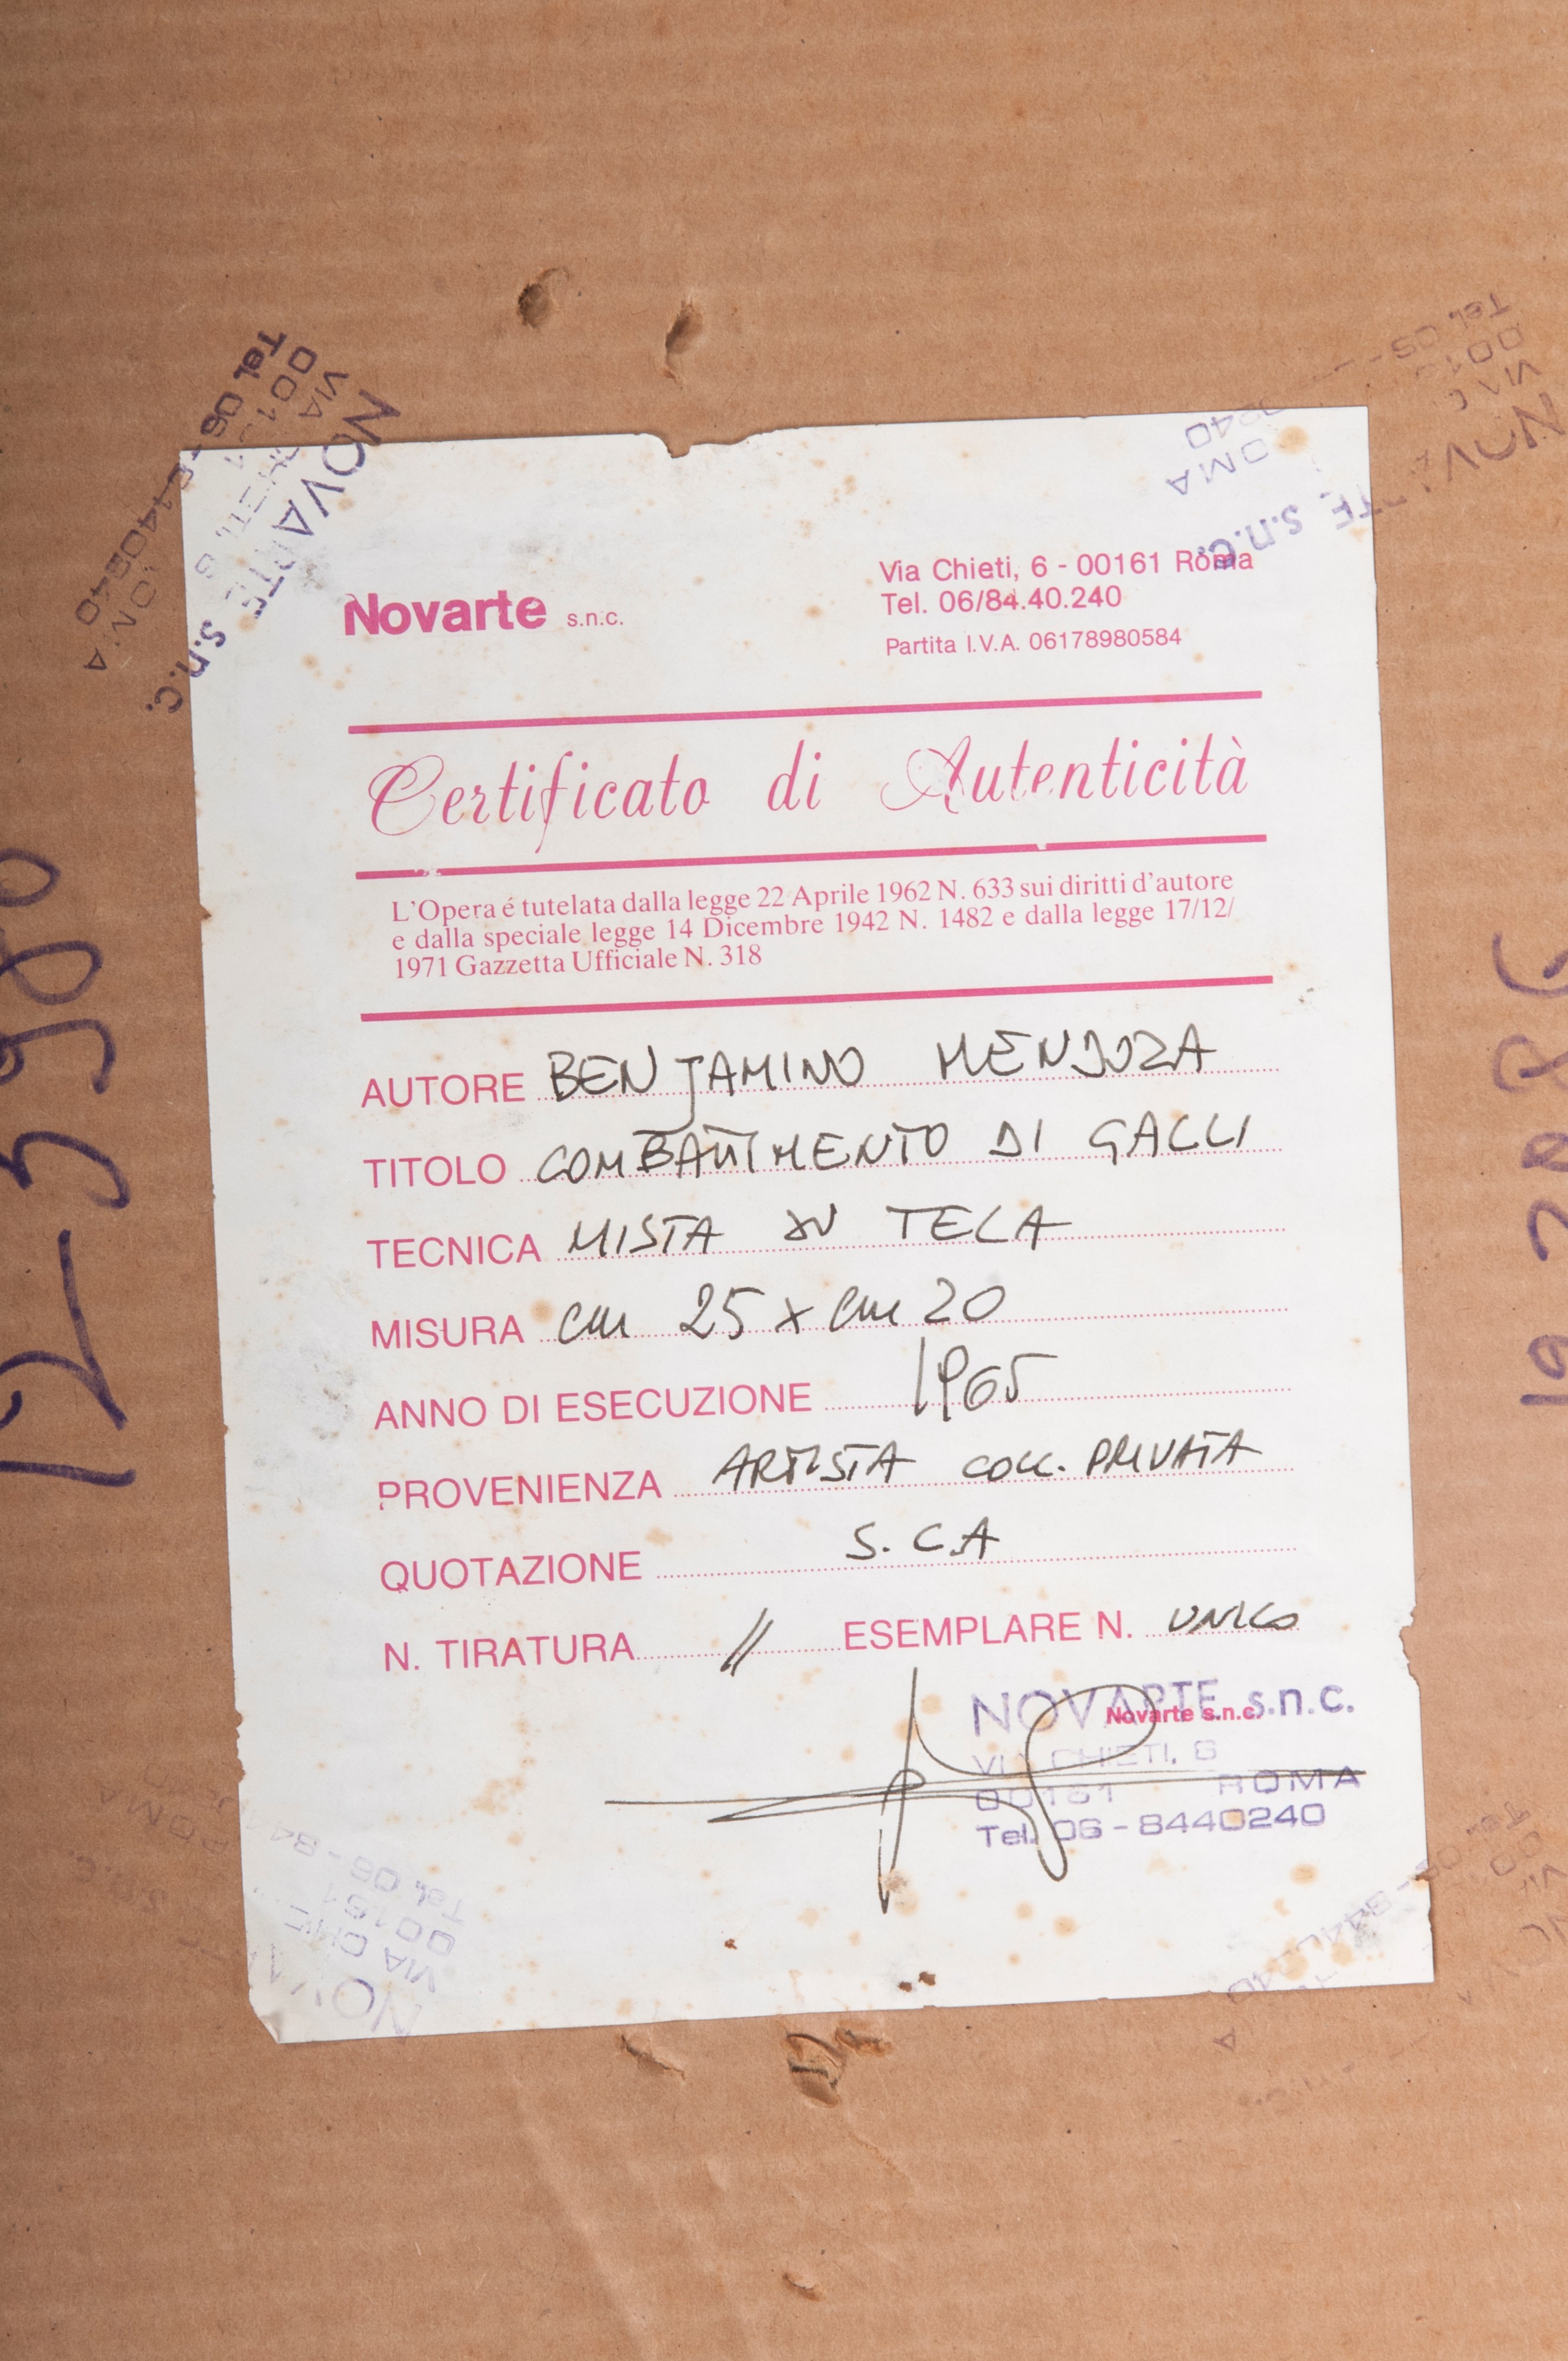 Novarte s.n.c.
Via Chieti, 6 - 00161 Roma
Tel. 06/84.40.240
Partita I.V.A. 06178980584
Certificato di Autenticità
L'Opera é tutelata dalla legge 22 Aprile 1962 N. 633 sui diritti d'autore
e dalla speciale legge 14 Dicembre 1942 N. 1482 e dalla legge 17/12/
1971 Gazzetta Ufficiale N. 318
AUTORE BENJAMINO MENDOZA
TITOLO COMBATTIMENTO DI GALLI
TECNICA MISTA SU TELA
MISURA cm 25 x cm 20
ANNO DI ESECUZIONE 1965
PROVENIENZA ARTISTA COLL. PRIVATA
QUOTAZIONE S.C.A
N. TIRATURA // ESEMPLARE N. UNICO
NOVARTE s.n.c.
Novarte s.n.c.
VIA CHIETI, 6
00161 ROMA
Tel. 06 - 8440240
NOVARTE s.n.c.
VIA CHIETI, 6
00161 ROMA
Tel. 06 - 8440240